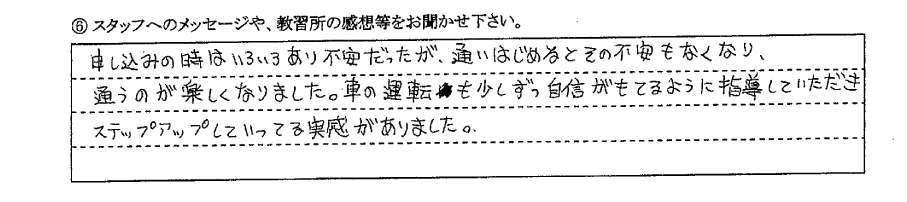 ⑥ スタッフへのメッセージや、教習所の感想等をお聞かせ下さい。
申し込みの時はいろいろあり不安だったが、通いはじめるとその不安もなくなり、
通うのが楽しくなりました。車の運転も少しずつ自信がもてるように指導していただき
ステップアップしていってる実感がありました。